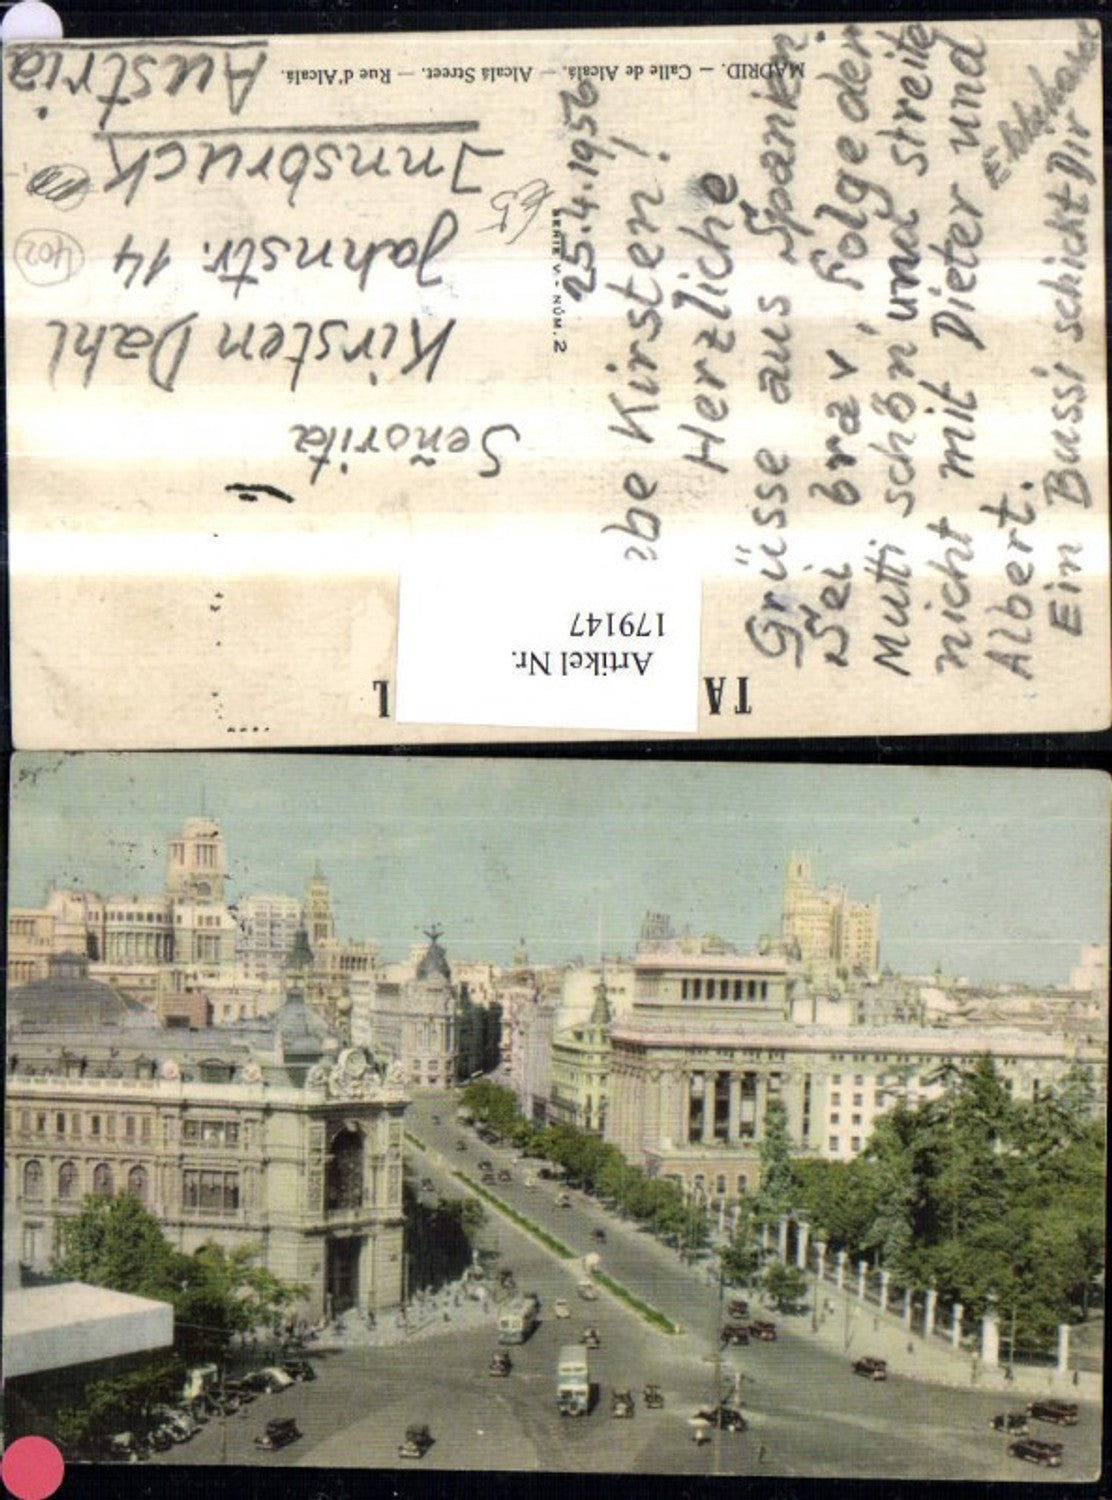 TA L
Artikel Nr.
179147
MADRID. — Calle de Alcalá. — Alcalá Street. — Rue d'Alcalá.
SERIE V - NÚM. 2
25.4.1956
be Kirsten!
Herzliche
Grüsse aus Spanien.
Sei brav, folge der
Mutti schön und streite
nicht mit Dieter und
Albert.
Ein Bussi schickt Dir
Señorita
Kirsten Dahl
Jahnstr. 14
Innsbruck
Austria
402